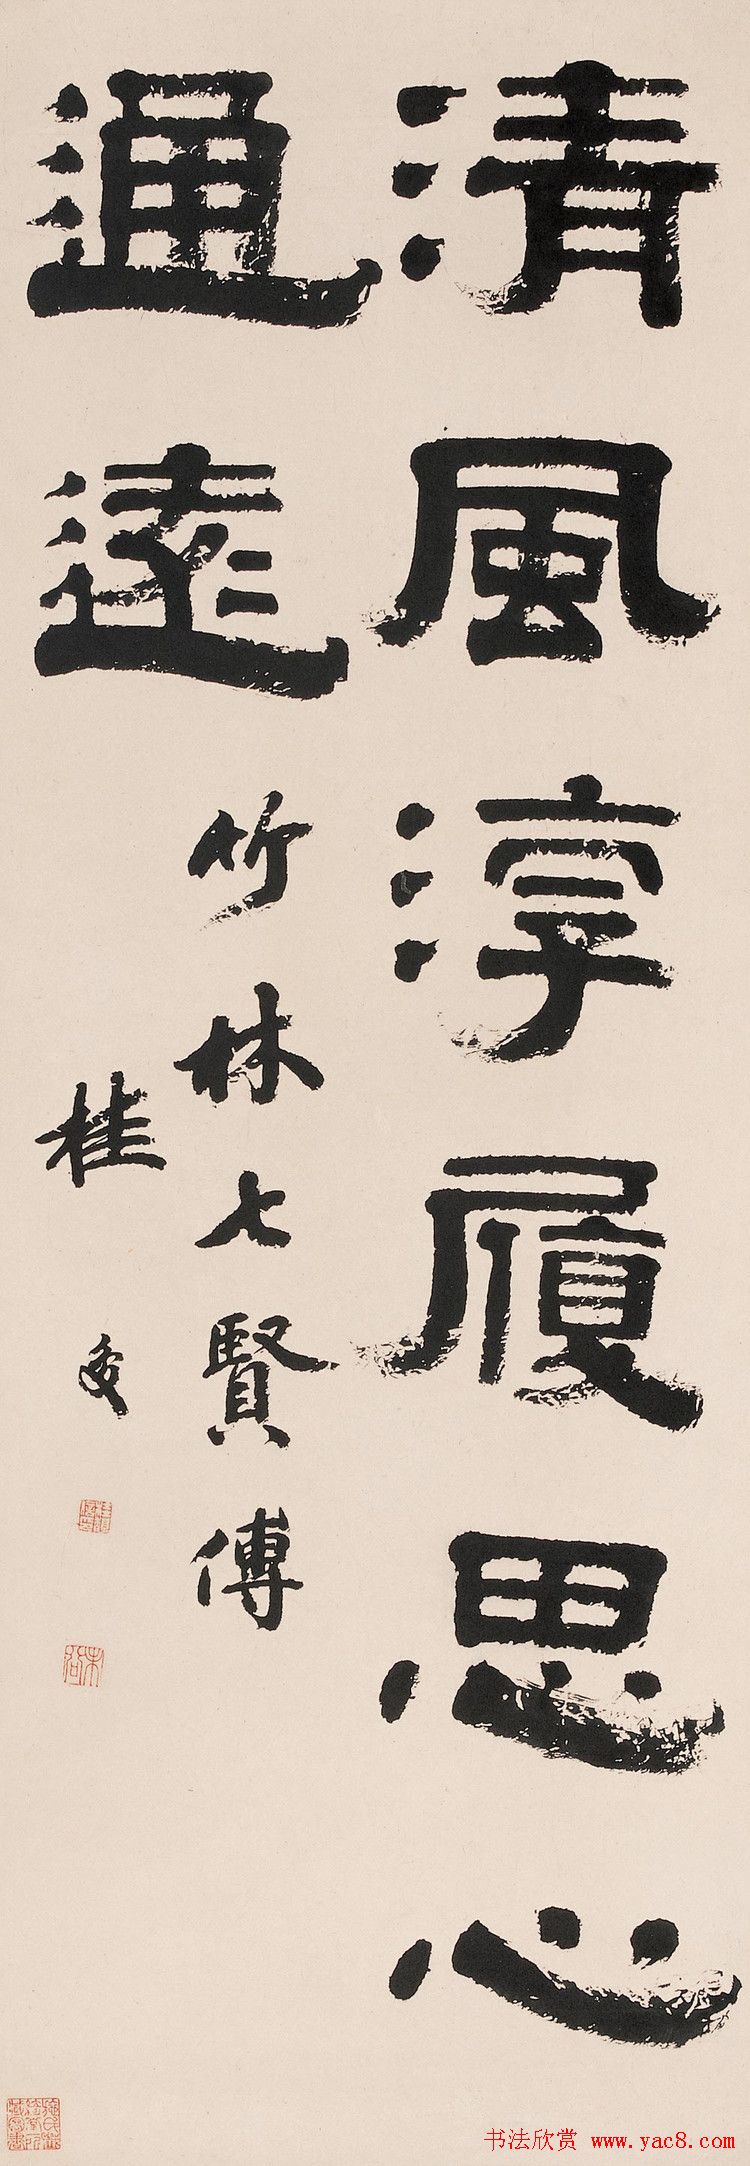 清風淳履思心
通遠
竹林七賢傳
桂馥
书法欣赏 www.yac8.com